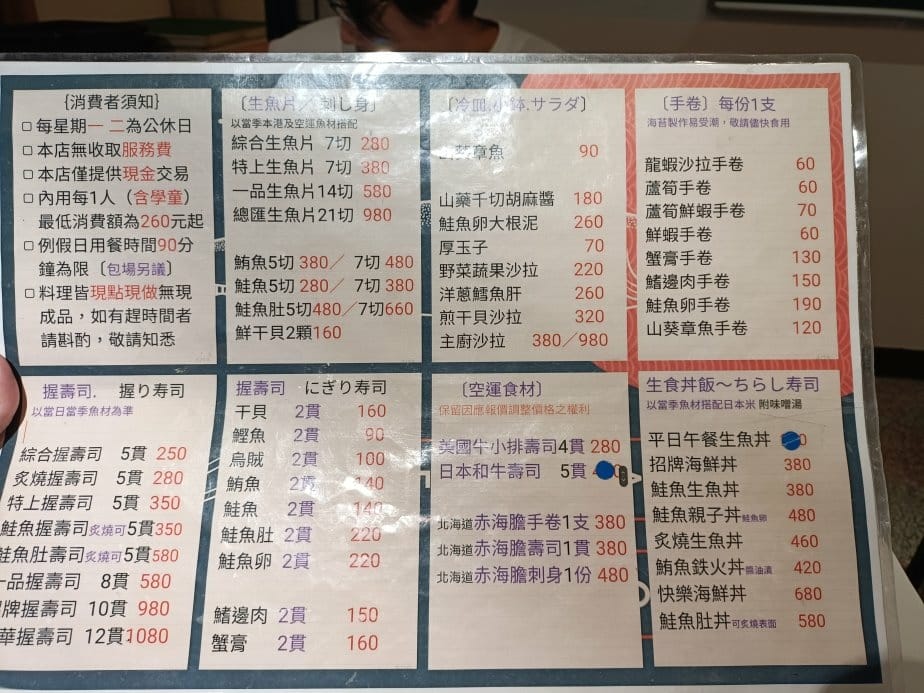 {消費者須知}
□ 每星期一 二為公休日
□ 本店無收取服務費
□ 本店僅提供現金交易
□ 內用每1人（含學童）
最低消費額為260元起
□ 例假日用餐時間90分
鐘為限〔包場另議〕
□ 料理皆現點現做無現
成品，如有趕時間者
請斟酌，敬請知悉
〔生魚片／刺し身〕
以當季本港及空運魚材搭配
綜合生魚片 7切 280
特上生魚片 7切 380
一品生魚片14切 580
總匯生魚片21切 980
鮪魚5切 380／ 7切 480
鮭魚5切 280／ 7切 380
鮭魚肚5切480／7切660
鮮干貝2顆160
〔冷皿.小鉢.サラダ〕
山葵章魚 90
山藥千切胡麻醬 180
鮭魚卵大根泥 260
厚玉子 70
野菜蔬果沙拉 220
洋蔥鱈魚肝 260
煎干貝沙拉 320
主廚沙拉 380／980
〔手卷〕每份1支
海苔製作易受潮，敬請儘快食用
龍蝦沙拉手卷 60
蘆筍手卷 60
蘆筍鮮蝦手卷 70
鮮蝦手卷 60
蟹膏手卷 130
鰭邊肉手卷 150
鮭魚卵手卷 190
山葵章魚手卷 120
握壽司. 握り寿司
以當日當季魚材為準
綜合握壽司 5貫 250
炙燒握壽司 5貫 280
特上握壽司 5貫 350
鮭魚握壽司炙燒可5貫350
鮭魚肚壽司炙燒可5貫580
一品握壽司 8貫 580
牌握壽司 10貫 980
華握壽司 12貫1080
握壽司 にぎり寿司
干貝 2貫 160
鰹魚 2貫 90
烏賊 2貫 100
鮪魚 2貫 140
鮭魚 2貫 140
鮭魚肚 2貫 220
鮭魚卵 2貫 220
鰭邊肉 2貫 150
蟹膏 2貫 160
〔空運食材〕
保留因應報價調整價格之權利
美國牛小排壽司4貫 280
日本和牛壽司 5貫
北海道赤海膽手卷1支 380
北海道赤海膽壽司1貫 380
北海道赤海膽刺身1份 480
生食丼飯～ちらし寿司
以當季魚材搭配日本米 附味噌湯
平日午餐生魚丼
招牌海鮮丼 380
鮭魚生魚丼 380
鮭魚親子丼鮭魚卵 480
炙燒生魚丼 460
鮪魚鉄火丼醬油漬 420
快樂海鮮丼 680
鮭魚肚丼可炙燒表面 580